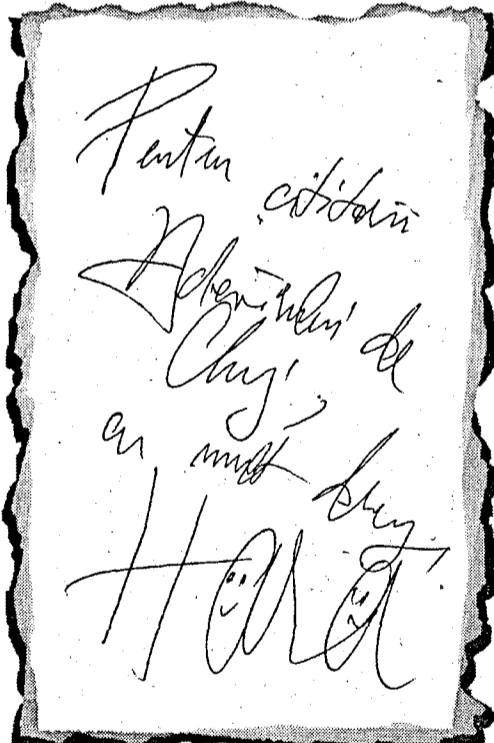 Pentru
cititorii
Adevărului de
Cluj,
cu mult drag,